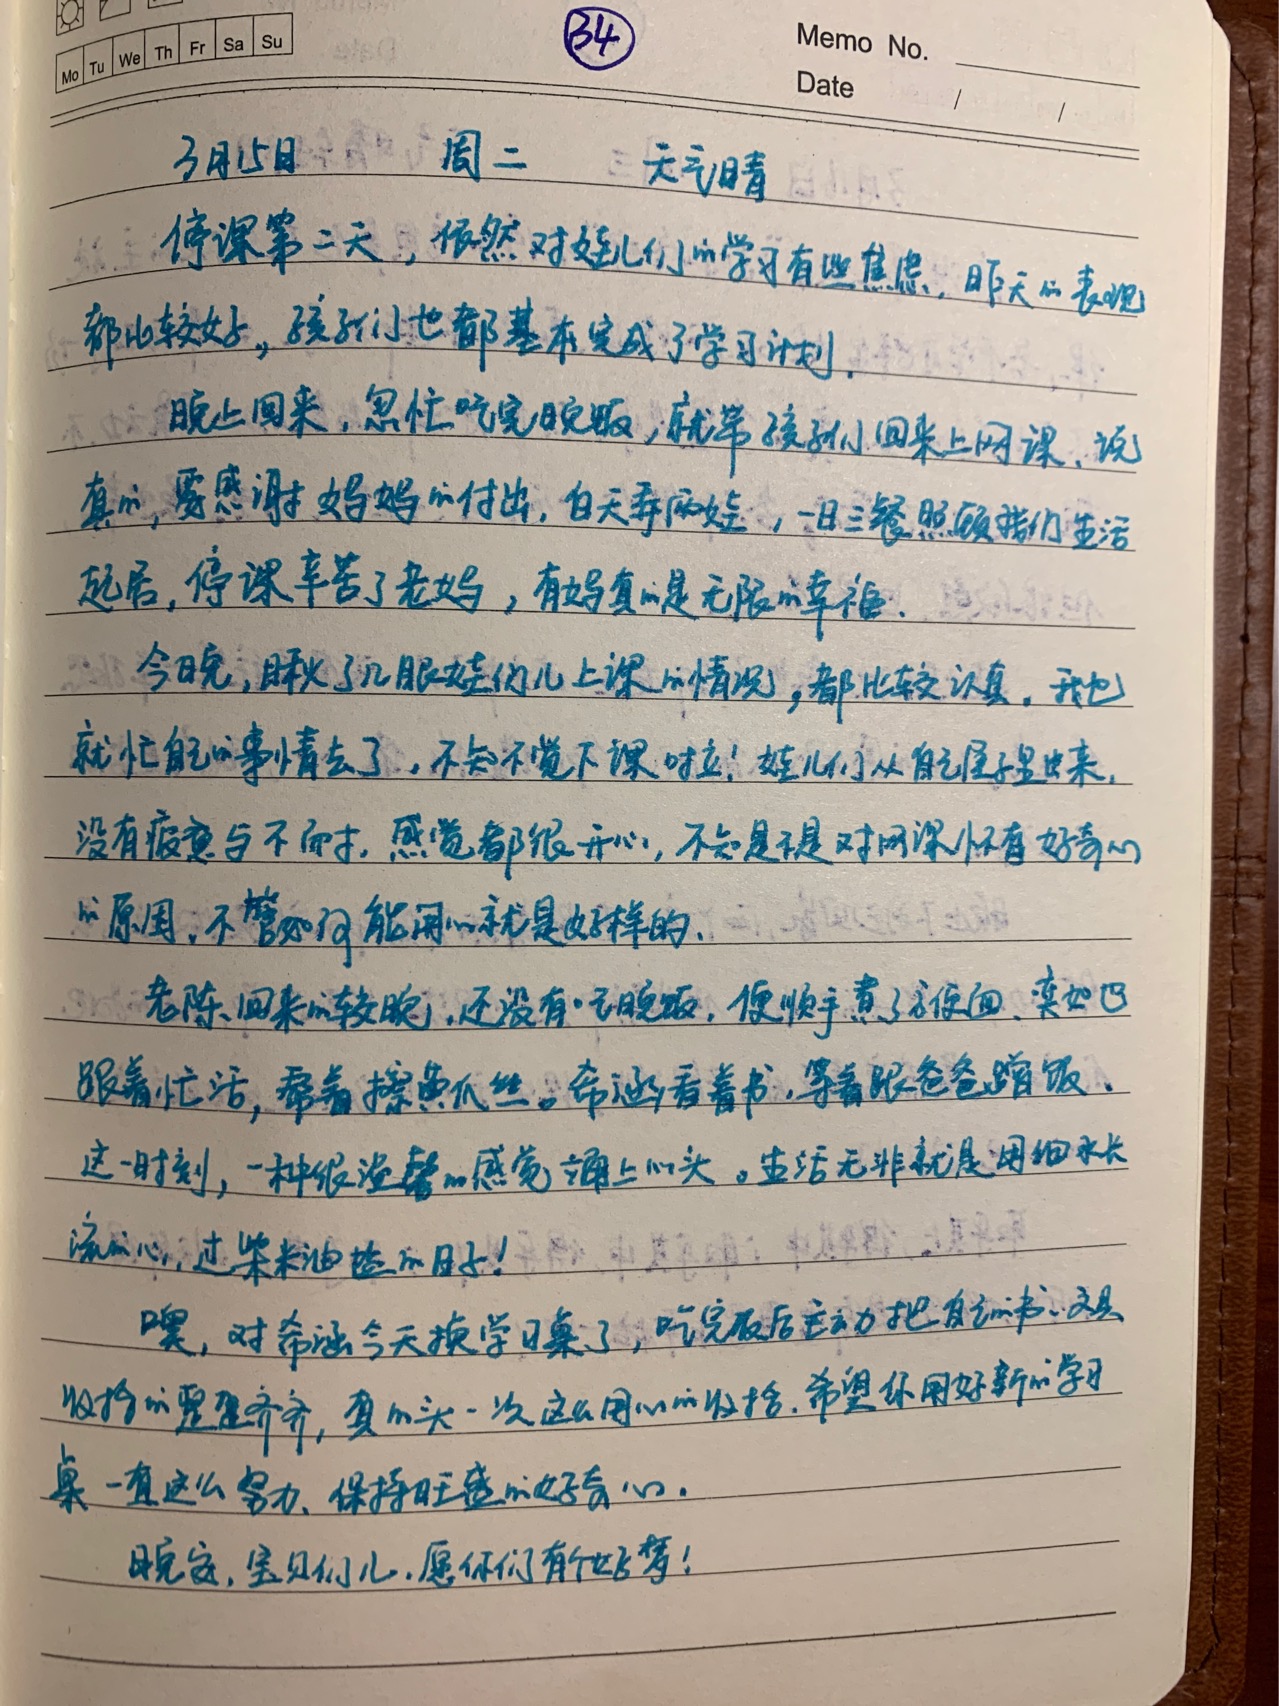 Mo Tu We Th Fr Sa Su
34
Memo No.
Date / /
3月15日 周二 天气晴
停课第二天,依然对娃儿们的学习有些焦虑,昨天的表现
都比较好,孩子们也都基本完成了学习计划.
晚上回来,忽忙吃完晚饭,就带孩子们回来上网课、说
真的,要感谢妈妈的付出,白天弄两娃,一日三餐照顾我们生活
起居,停课辛苦了老妈,有妈真的是无限的幸福.
今日晚,瞅了几眼娃们儿上课的情况,都比较认真.我也
就忙自己的事情去了.不知不觉下课时立!娃儿们从自己屋子里出来,
没有疲惫与不耐,感觉都很开心,不知是不是对网课怀有好奇心
的原因,不管如何能用心就是好样的.
老陈回来的较晚,还没有吃晚饭,便顺手煮了方便面、奕如也
跟着忙活,帮着擦黄瓜丝。希涵看着书,等着跟爸爸蹭饭.
这一时刻,一种很温馨的感觉涌上心头。生活无非就是用细水长
流的心,过柴米油盐的日子!
噢,对希涵今天换学习桌了,吃完饭后主动把自己的书、文具
收拾的整整齐齐,真的头一次这么用心的收拾.希望你用好新的学习
桌一直这么努力、保持旺盛的好奇心.
晚安,宝贝们儿.愿你们有个好梦!